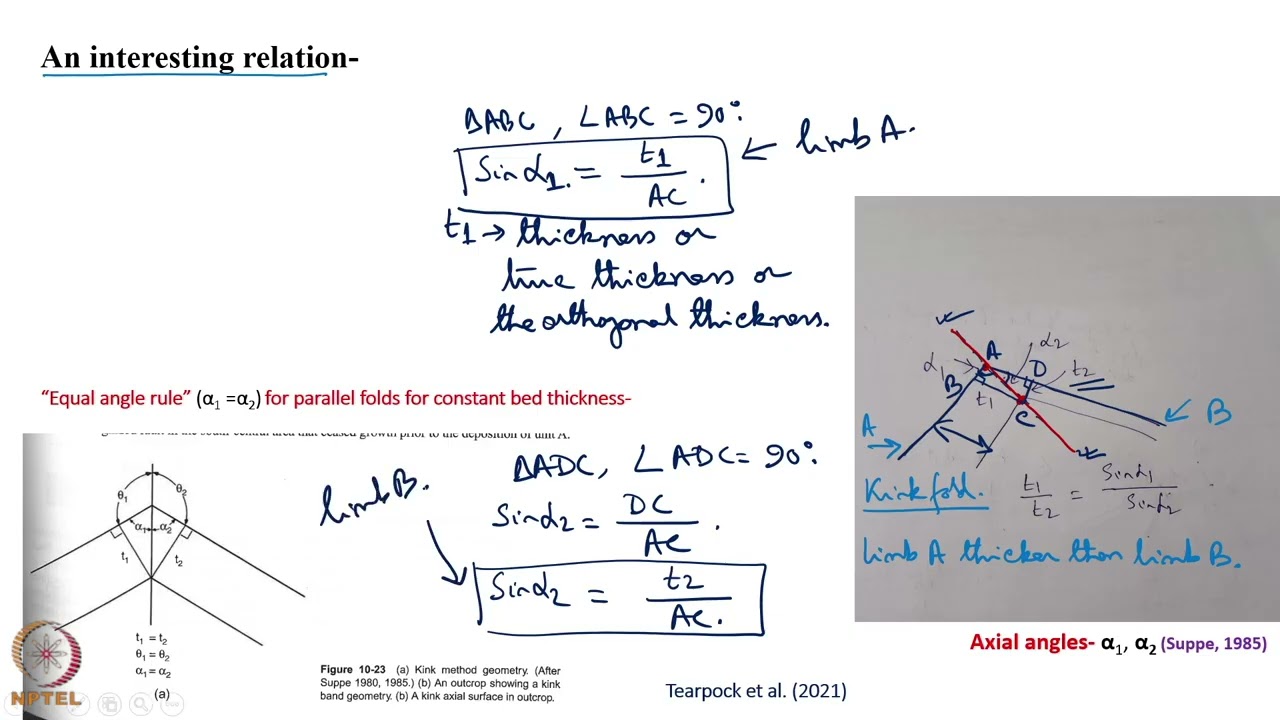 An interesting relation-
ΔABC, ∠ABC = 90°.
Sin α1. = t1 / AC .
← limb A.
t1 → thickness or
true thickness or
the orthogonal thickness.
"Equal angle rule" (α1 =α2) for parallel folds for constant bed thickness-
limb B.
ΔADC, ∠ADC = 90°.
Sin α2 = DC / AC .
Sin α2 = t2 / AC.
θ1 θ2
α1 α2
t1 t2
t1 = t2
θ1 = θ2
α1 = α2
(a)
NPTEL
Figure 10-23 (a) Kink method geometry. (After
Suppe 1980, 1985.) (b) An outcrop showing a kink
band geometry. (b) A kink axial surface in outcrop.
Tearpock et al. (2021)
α2
α1 A D t2
B t1
C B
A
Kink fold. t1 / t2 = Sin α1 / Sin α2
limb A thicker than limb B.
Axial angles- α1, α2 (Suppe, 1985)